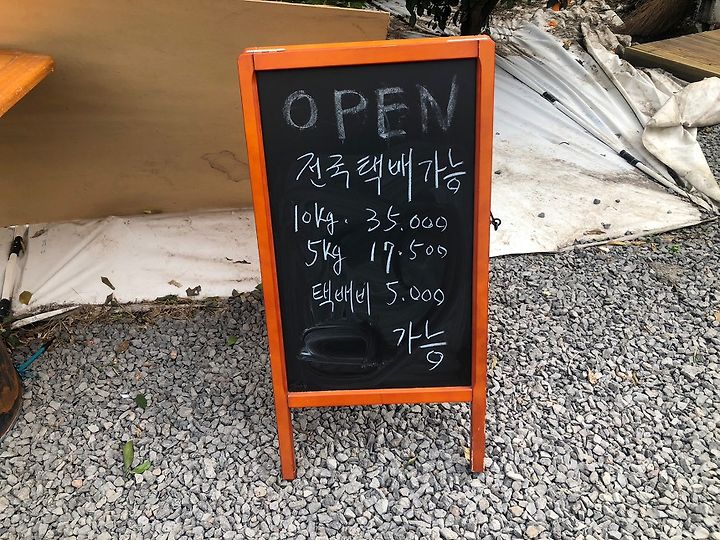 OPEN
전국택배가능
10kg. 35.000
5kg 17.500
택배비 5.000
가능